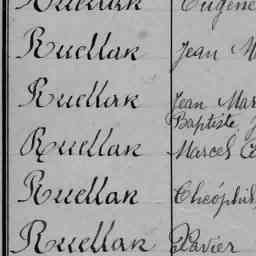 Ruellan Eugène
Ruellan Jean M
Ruellan Jean Mar
Baptiste J
Ruellan Marcel
Ruellan Théophil
Ruellan Xavier